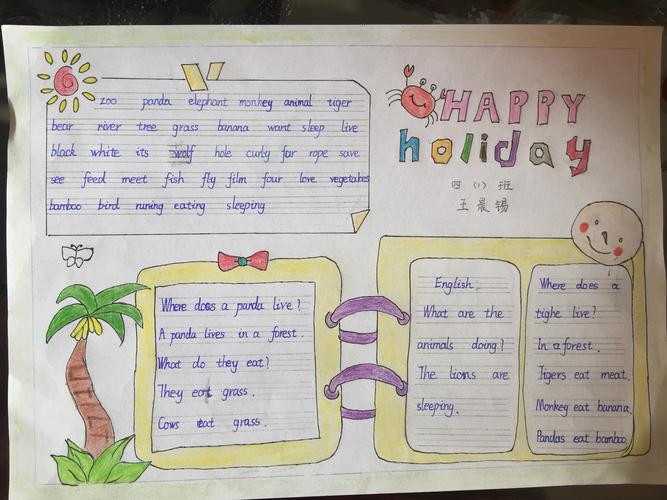 zoo panda elephant monkey animal tiger
bear river tree grass banana want sleep live
black white its wolf hole curly far rope save
see feed meet fish fly film four love vegetabes
bamboo bird runing eating sleeping
HAPPY
holiday
四（1）班
王晨锡
Where does a panda live?
A panda lives in a forest.
What do they eat?
They eat grass.
Cows eat grass.
English.
What are the
animals doing?
The lions are
sleeping.
Where does a
tighe live?
In a forest.
Tigers eat meat.
Monkey eat banana.
Pandas eat bamboo.